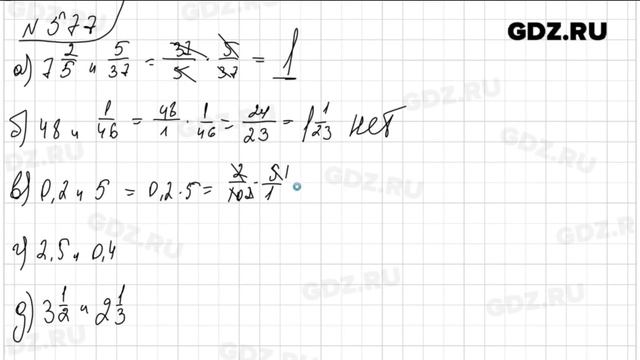 GDZ.RU
N 577
а) 7 2/5 и 5/37 = 37/5 · 5/37 = 1
б) 48 и 1/46 = 48/1 · 1/46 = 24/23 = 1 1/23 нет
в) 0,2 и 5 = 0,2 · 5 = 2/10 2 · 5 1/1
г) 2,5 и 0,4
д) 3 1/2 и 2 1/3